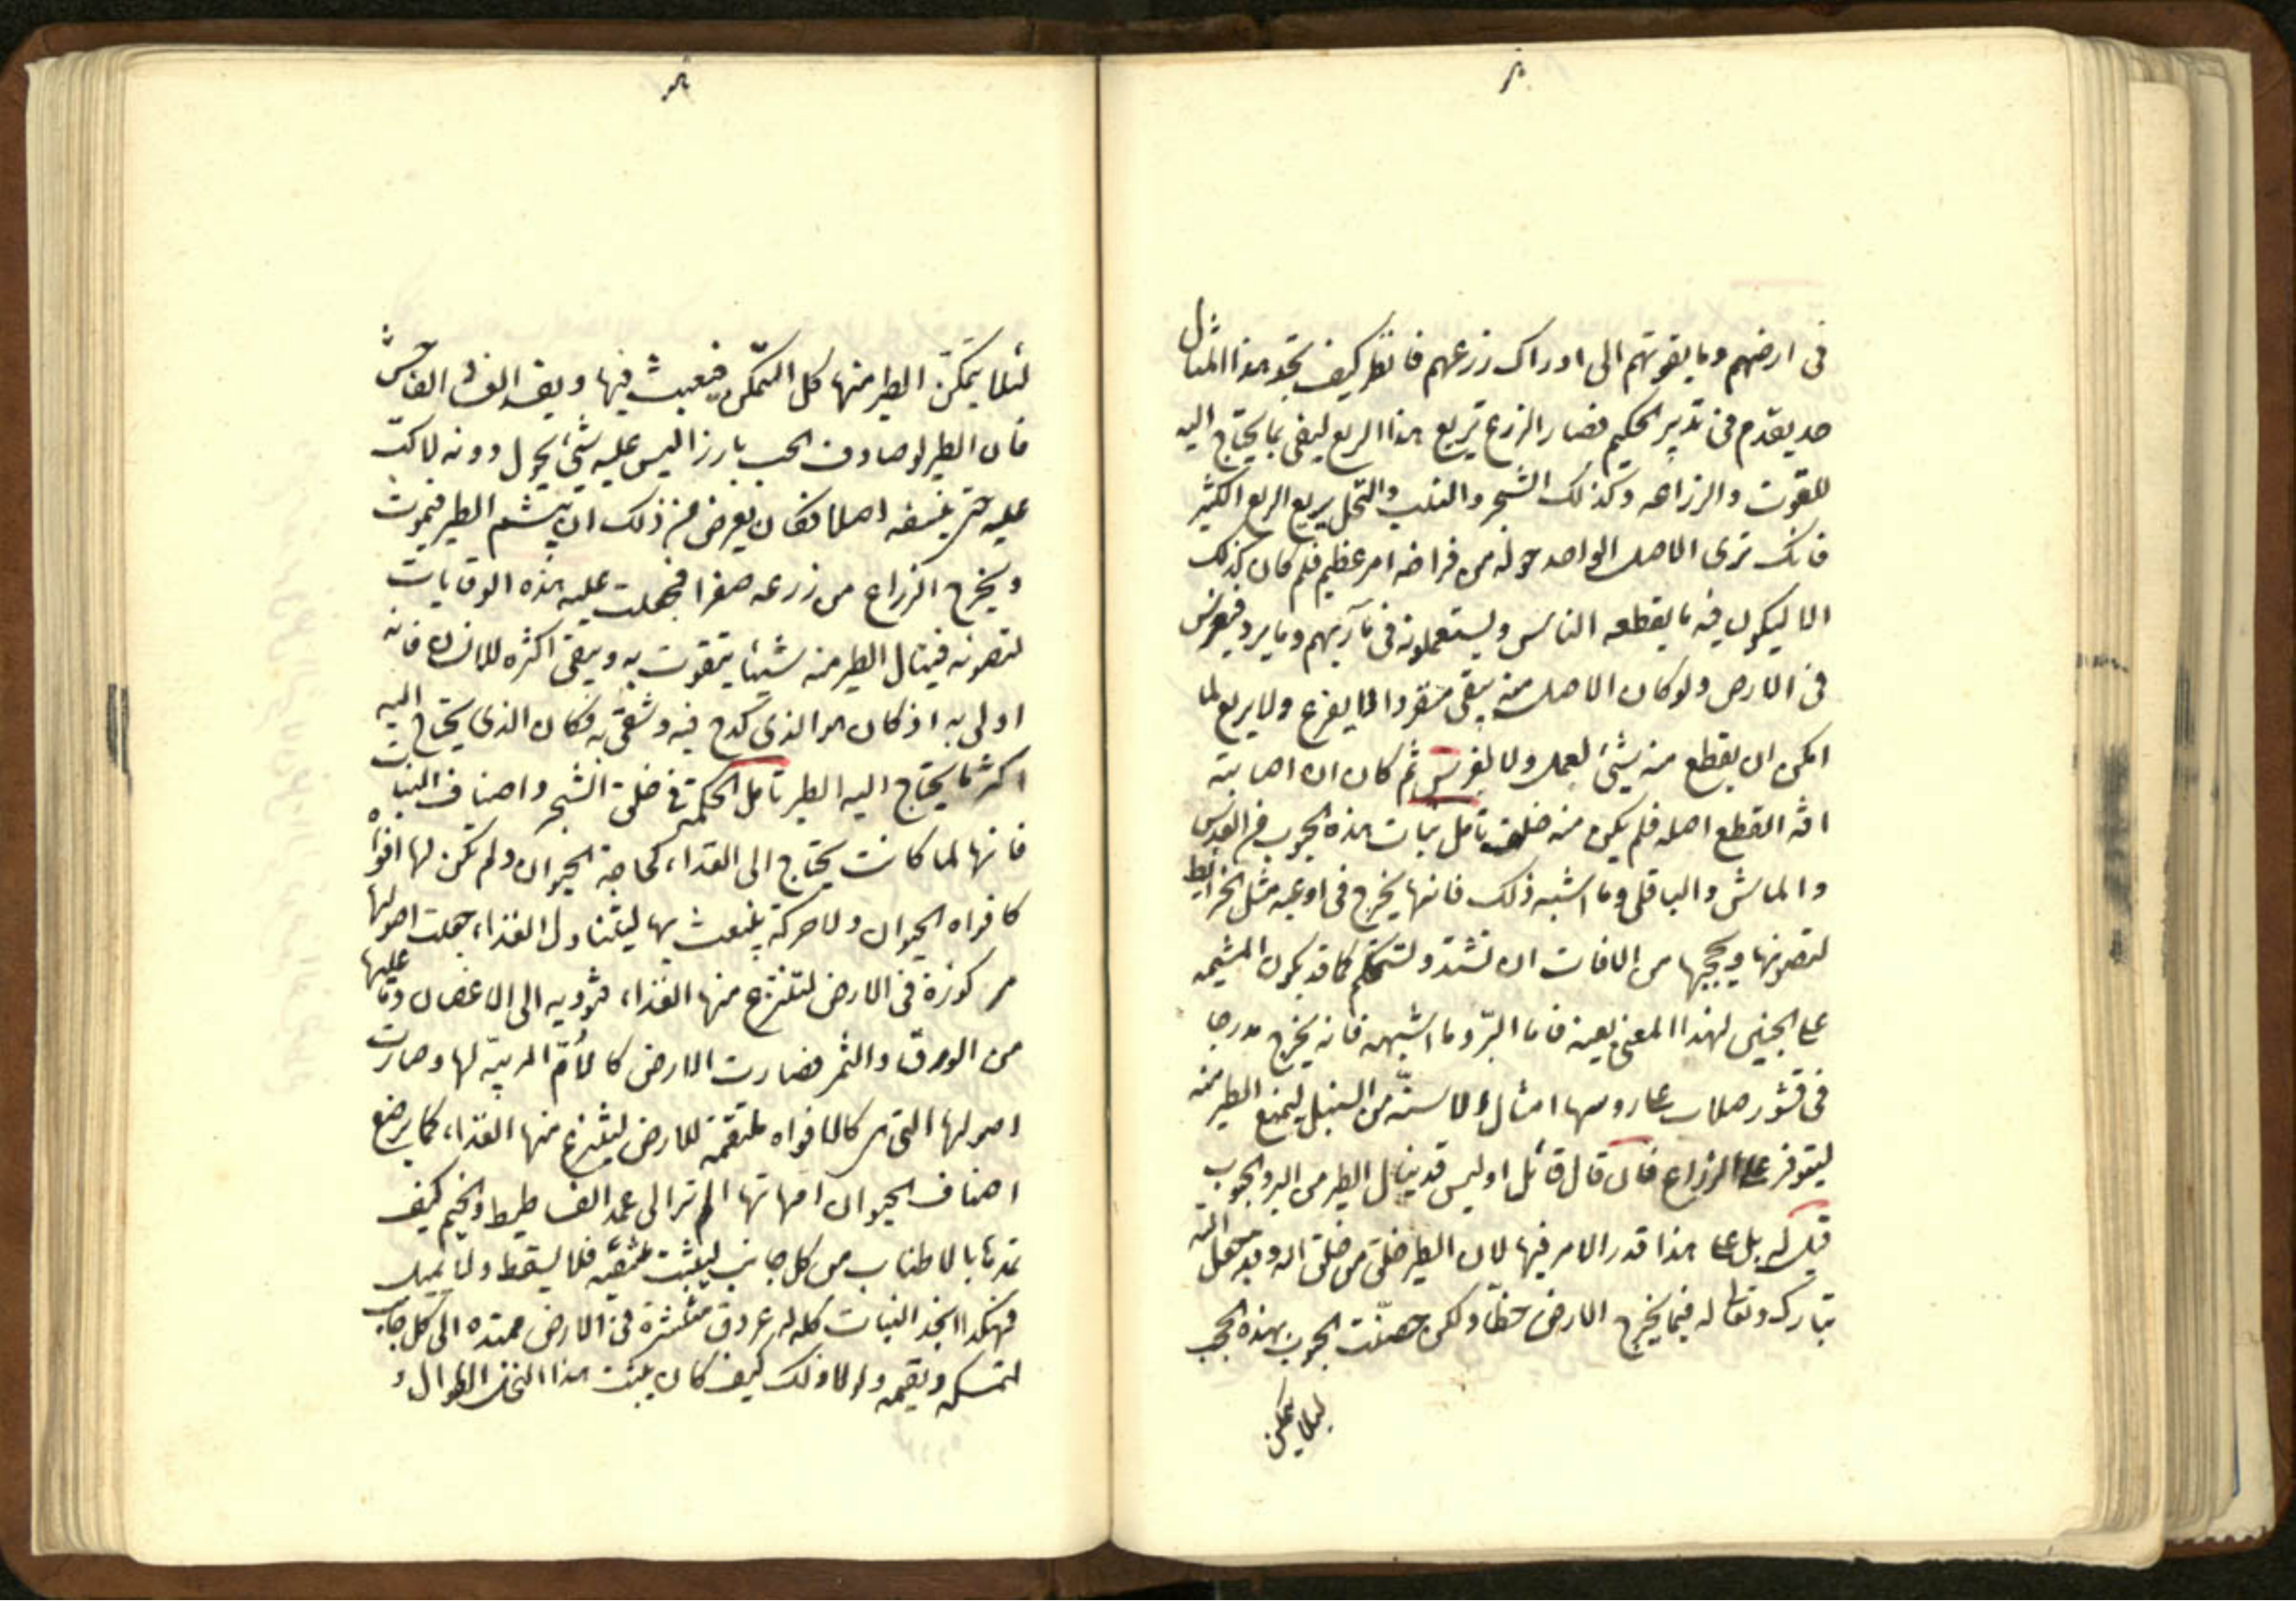 فى ارضهم وما يقوتهم الى ادراك زرعهم فانظر كيف تجد هذا المثال
قد يقدم فى تدبير الحكيم فصار الزرع يريع هذا الريع ليفى بما يحتاج اليه
للقوت والزراعه وكذلك الشجر والنبت والنخل يريع الريع الكثير
فانك ترى الاصل الواحد حوله من فراخه امر عظيم فلم كان كذلك
الا ليكون فيه ما يقطعه الناس ويستعملونه فى مآربهم وما يرد فيغرس
فى الارض ولو كان الاصل منه يبقى منفردا لا يفرخ ولا يريع لما
امكن ان يقطع منه شيئ لعمل ولا لغرس ثم كان ان اصابته
افة القطع اصله فلم يكن منه خلف تامل نبات هذه الحبوب من العدس
والماش والباقلى وما اشبه ذلك فانها يخرج فى اوعيه مثل الخرائط
لتصونها ويحجبها من الافات ان تشتد وتستحكم كما قد يكون المشيمه
على الجنين لهذا المعنى بعينه فاما البرّ وما اشبهه فانه يخرج مدرجا
فى قشور صلاب على روسها امثال الاسنّه من السنبل ليمنع الطير منه
ليتوفر على الزراع فان قال قائل اوليس قد ينال الطير من البر والحبوب
قيل له بل على هذا قدر الامر فيها لان الطير خلق من خلق الله وقد جعل الله
تبارك وتعالى له فيما يخرج الارض حظّا ولكن حصّنت الحبوب بهذه الحجب
لئلا يتمكن
لئلا يتمكّن الطير منها كل التمكّن فيعبث فيها ويفسد الفساد الفاحش
فان الطير لو صادف الحب بارزا ليس عليه شيئ يحول دونه لاكبّ
عليه حتى ينسفه اصلا فكان يعرض من ذلك ان يبشم الطير فيموت
ويخرج الزراع من زرعه صفرا فجعلت عليه هذه الوقايات
لتصونه فينال الطير منه شيئا يتقوت به ويبقى اكثره للانسان فانه
اولى به اذ كان هو الذى كدح فيه وشقى به وكان الذى يحتاج اليه
اكثر ما يحتاج اليه الطير تامل الحكمة فى خلق الشجر واصناف النبات
فانها لما كانت يحتاج الى الغذاء كحاجة الحيوان ولم تكن لها افواه
كافواه الحيوان ولا حركة ينبعث بها ليتناول الغذاء جعلت اصولها
مركوزة فى الارض لتنتزع منها الغذاء فتؤديه الى الاغصان وما عليها
من الورق والثمر فصارت الارض كالأمّ المربيّة لها وصارت
اصولها التى هى كالافواه ملتقمة للارض لينتزع منها الغذاء كما يرضع
اصناف الحيوان امهاتها الم تر الى عمد الفساطيط والخيم كيف
تمد بالاطناب من كل جانب ليثبت منتصبه فلا يسقط ولا يميل
فهكذا تجد النبات كله له عروق منتشرة فى الارض ممتده الى كل جانب
لتمسكه ويقيمه ولولا ذلك كيف كان يثبت هذا النخل الطوال و